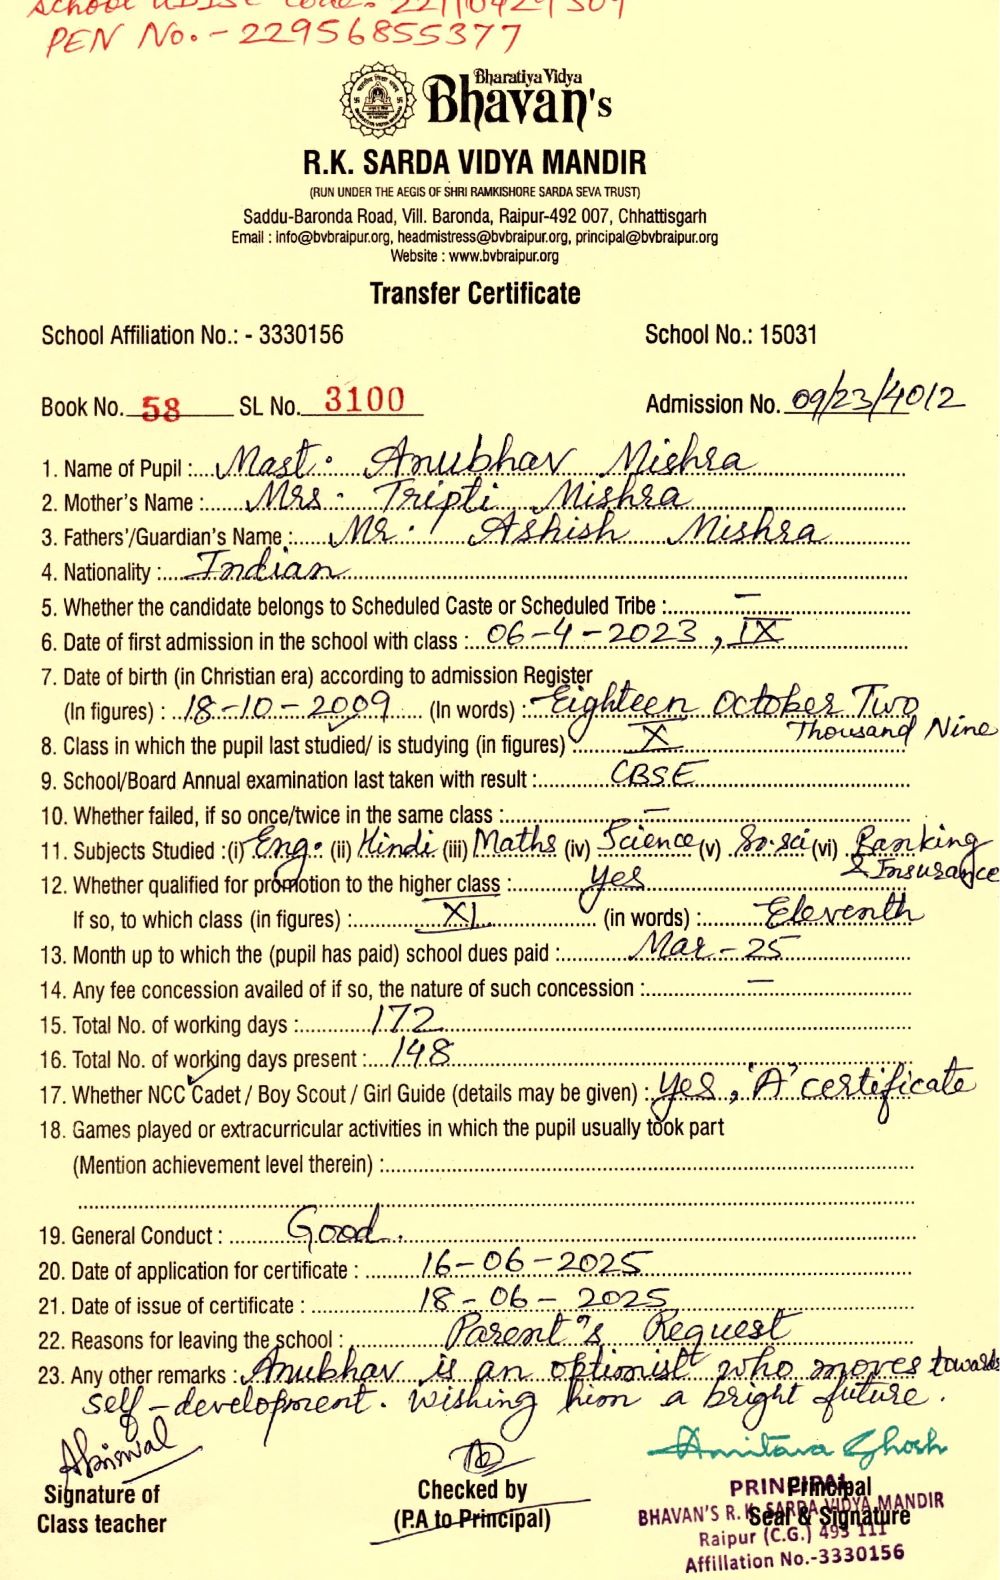 School UDISE Code:- 22110429309
PEN No.- 22956855377
Bharatiya Vidya
Bhavan's
R.K. SARDA VIDYA MANDIR
(RUN UNDER THE AEGIS OF SHRI RAMKISHORE SARDA SEVA TRUST)
Saddu-Baronda Road, Vill. Baronda, Raipur-492 007, Chhattisgarh
Email : info@bvbraipur.org, headmistress@bvbraipur.org, principal@bvbraipur.org
Website : www.bvbraipur.org
Transfer Certificate
School Affiliation No.: - 3330156 School No.: 15031
Book No. 58 SL No. 3100 Admission No. 09/23/4012
1. Name of Pupil : Mast. Anubhav Mishra
2. Mother's Name : Mrs. Tripti Mishra
3. Fathers'/Guardian's Name : Mr. Ashish Mishra
4. Nationality : Indian
5. Whether the candidate belongs to Scheduled Caste or Scheduled Tribe : —
6. Date of first admission in the school with class : 06-4-2023, IX
7. Date of birth (in Christian era) according to admission Register
(In figures) : 18-10-2009 (In words) : Eighteen October Two
Thousand Nine
8. Class in which the pupil last studied/ is studying (in figures) X
9. School/Board Annual examination last taken with result : CBSE
10. Whether failed, if so once/twice in the same class : —
11. Subjects Studied :(i) Eng. (ii) Hindi (iii) Maths (iv) Science (v) So.sci (vi) Banking
& Insurance
12. Whether qualified for promotion to the higher class : Yes
If so, to which class (in figures) : XI (in words) : Eleventh
13. Month up to which the (pupil has paid) school dues paid : Mar-25
14. Any fee concession availed of if so, the nature of such concession : —
15. Total No. of working days : 172
16. Total No. of working days present : 148
17. Whether NCC Cadet / Boy Scout / Girl Guide (details may be given) : Yes, 'A' certificate
18. Games played or extracurricular activities in which the pupil usually took part
(Mention achievement level therein) :
19. General Conduct : Good.
20. Date of application for certificate : 16-06-2025
21. Date of issue of certificate : 18-06-2025
22. Reasons for leaving the school : Parent's Request
23. Any other remarks : Anubhav is an optimist who moves towards
self-development. Wishing him a bright future.
Amitava Ghosh
Signature of Checked by Principal
Class teacher (P.A to Principal) Seal & Signature
PRINCIPAL
BHAVAN'S R. K. SARDA VIDYA MANDIR
Raipur (C.G.) 493 111
Affillation No.-3330156